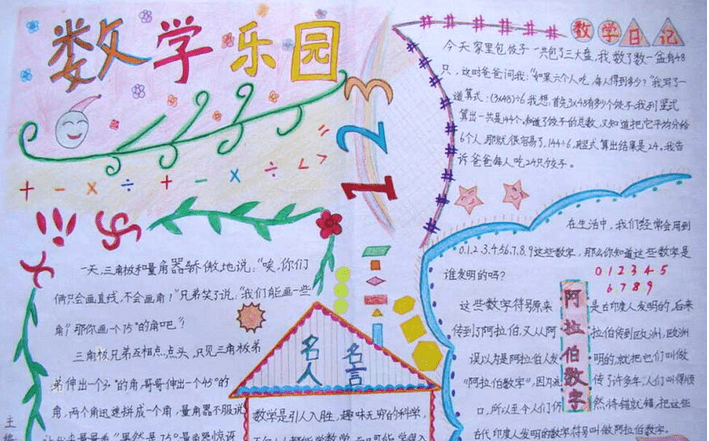 数学乐园
+ − × ÷ + − × ÷ < >
1 2 3
数学日记
今天家里包饺子一共包了三大盘,我数了数一盆有48
只,这时爸爸问我:"如果六个人吃,每人得到多少?"我写了一
道算式:(3×48)÷6我想:首先3×48有多少个饺子,我列竖式
算出一共是144个,知道了饺子的总数,又知道把它平均分给
6个人,那就很容易了,144÷6,用竖式算出结果是24。我告
诉爸爸每人吃24只饺子。
一天,三角板和量角器骄傲地说:"唉,你们
俩只会画直线,不会画角!"兄弟笑了说:"我们能画一些
角?那你画一个75°的角吧?"
三角板兄弟互相点点头,只见三角板弟
弟伸出一个30°的角,哥哥伸出一个45°的
角,两个角迅速拼成一个角,量角器不服说
名人名言
数学是引人入胜,趣味无穷的科学,
在生活中,我们经常会用到
0.1.2.3.4.5.6.7.8.9这些数字,那么你知道这些数字是
谁发明的吗?
0 1 2 3 4 5
6 7 8 9
阿拉伯数字
这些数字符号原来是古印度人发明的,后来
传到了阿拉伯,又从阿拉伯传到欧洲,欧洲
误以为是阿拉伯人发明的,就把它们叫做
"阿拉伯数字",因为流传了许多年人们叫得顺
口,所以至今人们仍然将错就错,把这些
古代印度人发明的数字符号叫做阿拉伯数字。